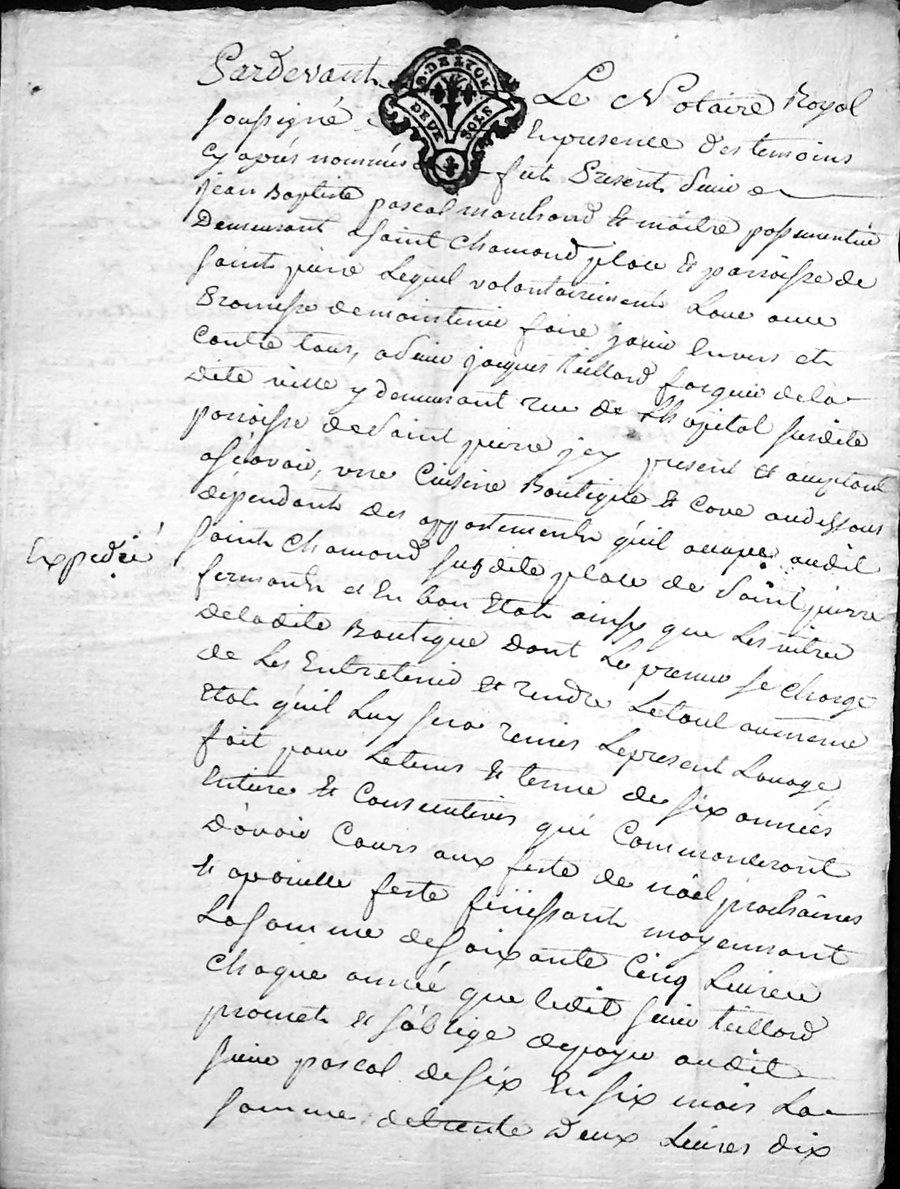 Pardevant Le Notaire Royal
G. DE LYON
DEUX SOLS
soussigné Enpresence des temoins
Cy aprés nommés fut Present Sieur
jean Baptiste pascal marchand Et maitre passementier
Demeurant a saint Chamond place Et parroisse de
saint pierre Lequel volontairement Loue avec
Promesse demaintenir faire jouir Envers et
Contre tous, a Sieur jacques teillard forgeur dela
dite ville y demeurant rue de Lhopital susdite
parroisse de Saint pierre jcy present Et acceptant
asçavoir, une Cuisine Boutique Et Cave audessous
dépendants des appartements qu'il occupe audit
Expedié
saint Chamond susdite place de Saint pierre
fermants et En bon Etat ainsy que Les vitres
deladite Boutique dont Le preneur se Charge
de Les Entretenir Et rendre Letout aumeme
Etat qu'il Luy sera remis Lepresent Louage
fait pour Letems Et terme de six années
Entieres Et Consecutives qui Commanceront
D'avoir Cours aux feste de noël prochaines
Et apareille feste finissant moyennant
Lasomme desoixante Cinq Livres
Chaque année que ledit sieur teillard
promet Et s'oblige depayer audit
sieur pascal desix Ensix mois La
somme detrente Deux Livres dix